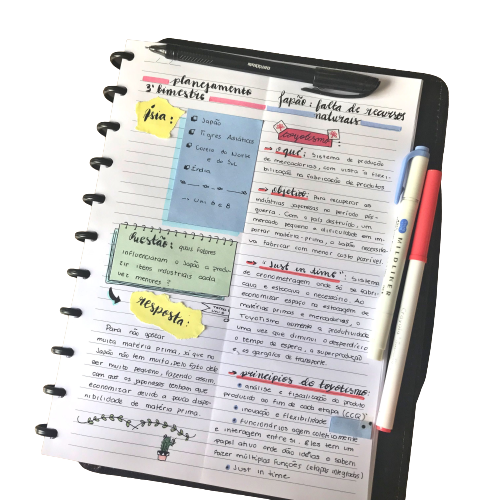 planejamento
3º bimestre
Ásia:
Japão
Tigres Asiáticos
Coreia do Norte
e do Sul
Índia
Uni B e B
Questão: quais fatores
influenciaram o Japão a produ-
zir itens industriais cada
vez menores?
Resposta:
Para não gastar
muita matéria prima, já que no
Japão não tem muito, pelo fato dele
ser muito pequeno, fazendo assim,
com que os japoneses tenham que
economizar devido a pouca dispo-
nibilidade de matéria prima.
Japão: falta de recursos
naturais
Toyotismo:
o quê: Sistema de produção
de mercadorias, com vista à flexi-
bilização na fabricação de produtos
objetivo: para recuperar as
indústrias japonesas no período pós-
guerra. Com o país destruído, um
mercado pequeno e dificuldade em im-
portar matéria-prima, o Japão necessita-
va fabricar com menor custo possível.
"Just in time": Sistema
de cronometragem onde só se fabri-
cava e estocava o necessário. Ao
economizar espaço na estocagem de
matérias primas e mercadorias, o
Toyotismo aumenta a produtividade
uma vez que diminui o desperdício
o tempo de espera, a superprodução
e os gargalos de transporte.
princípios do toyotismo:
análise e fiscalização do produto
produzido ao fim de cada etapa (CCQ)
inovação e flexibilidade
funcionários agem coletivamente
e interagem entre si. Eles tem um
papel ativo onde dão idéias e sabem
fazer múltiplas funções (etapas integradas)
Just in time
MIDLINER